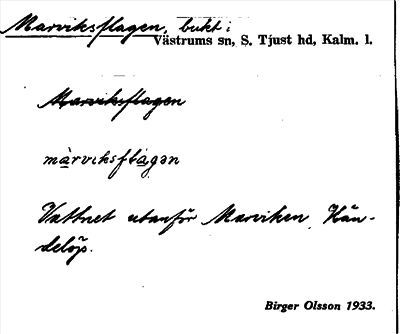 Marviksflagen, bukt i
Västrums sn, S. Tjust hd, Kalm. l.
Marviksflagen
màrviksflàgən
Vattnet utanför Marviken, Hän-
delöp.
Birger Olsson 1933.